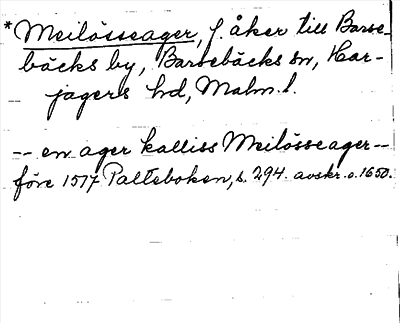 *Meilösseager, f. åker till Barse-
bäcks by, Barsebäcks sn, Har-
jagers hd, Malm. l.
-- en ager kalliss Meilösseager --
före 1517 Palteboken, s. 294. avskr. o. 1650.